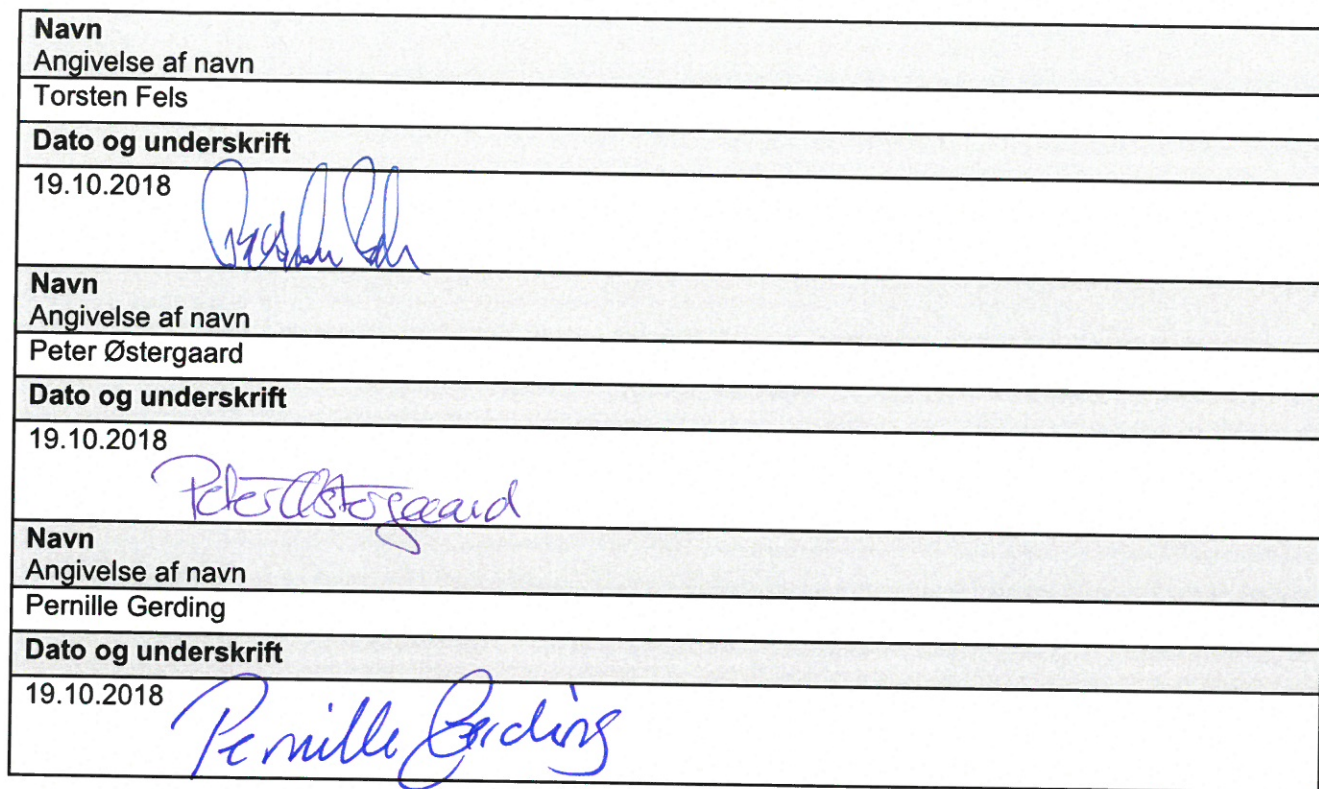 Navn
Angivelse af navn
Torsten Fels
Dato og underskrift
19.10.2018
Navn
Angivelse af navn
Peter Østergaard
Dato og underskrift
19.10.2018
Peter Østergaard
Navn
Angivelse af navn
Pernille Gerding
Dato og underskrift
19.10.2018
Pernille Gerding